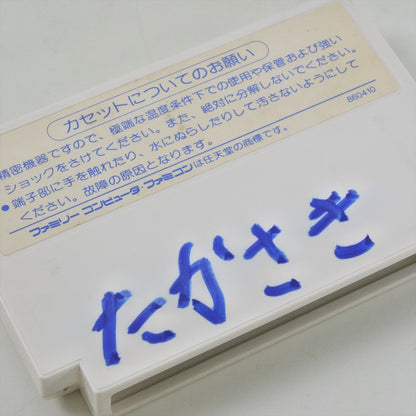 カセットについてのお願い
精密機器ですので、極端な温度条件下での使用や保管および強い
ショックをさけてください。また、絶対に分解しないでください。
●端子部に手を触れたり、水にぬらしたりして汚さないようにして
ください。故障の原因となります。
B60410
ファミリーコンピュータ・ファミコンは任天堂の商標です。
たかさき